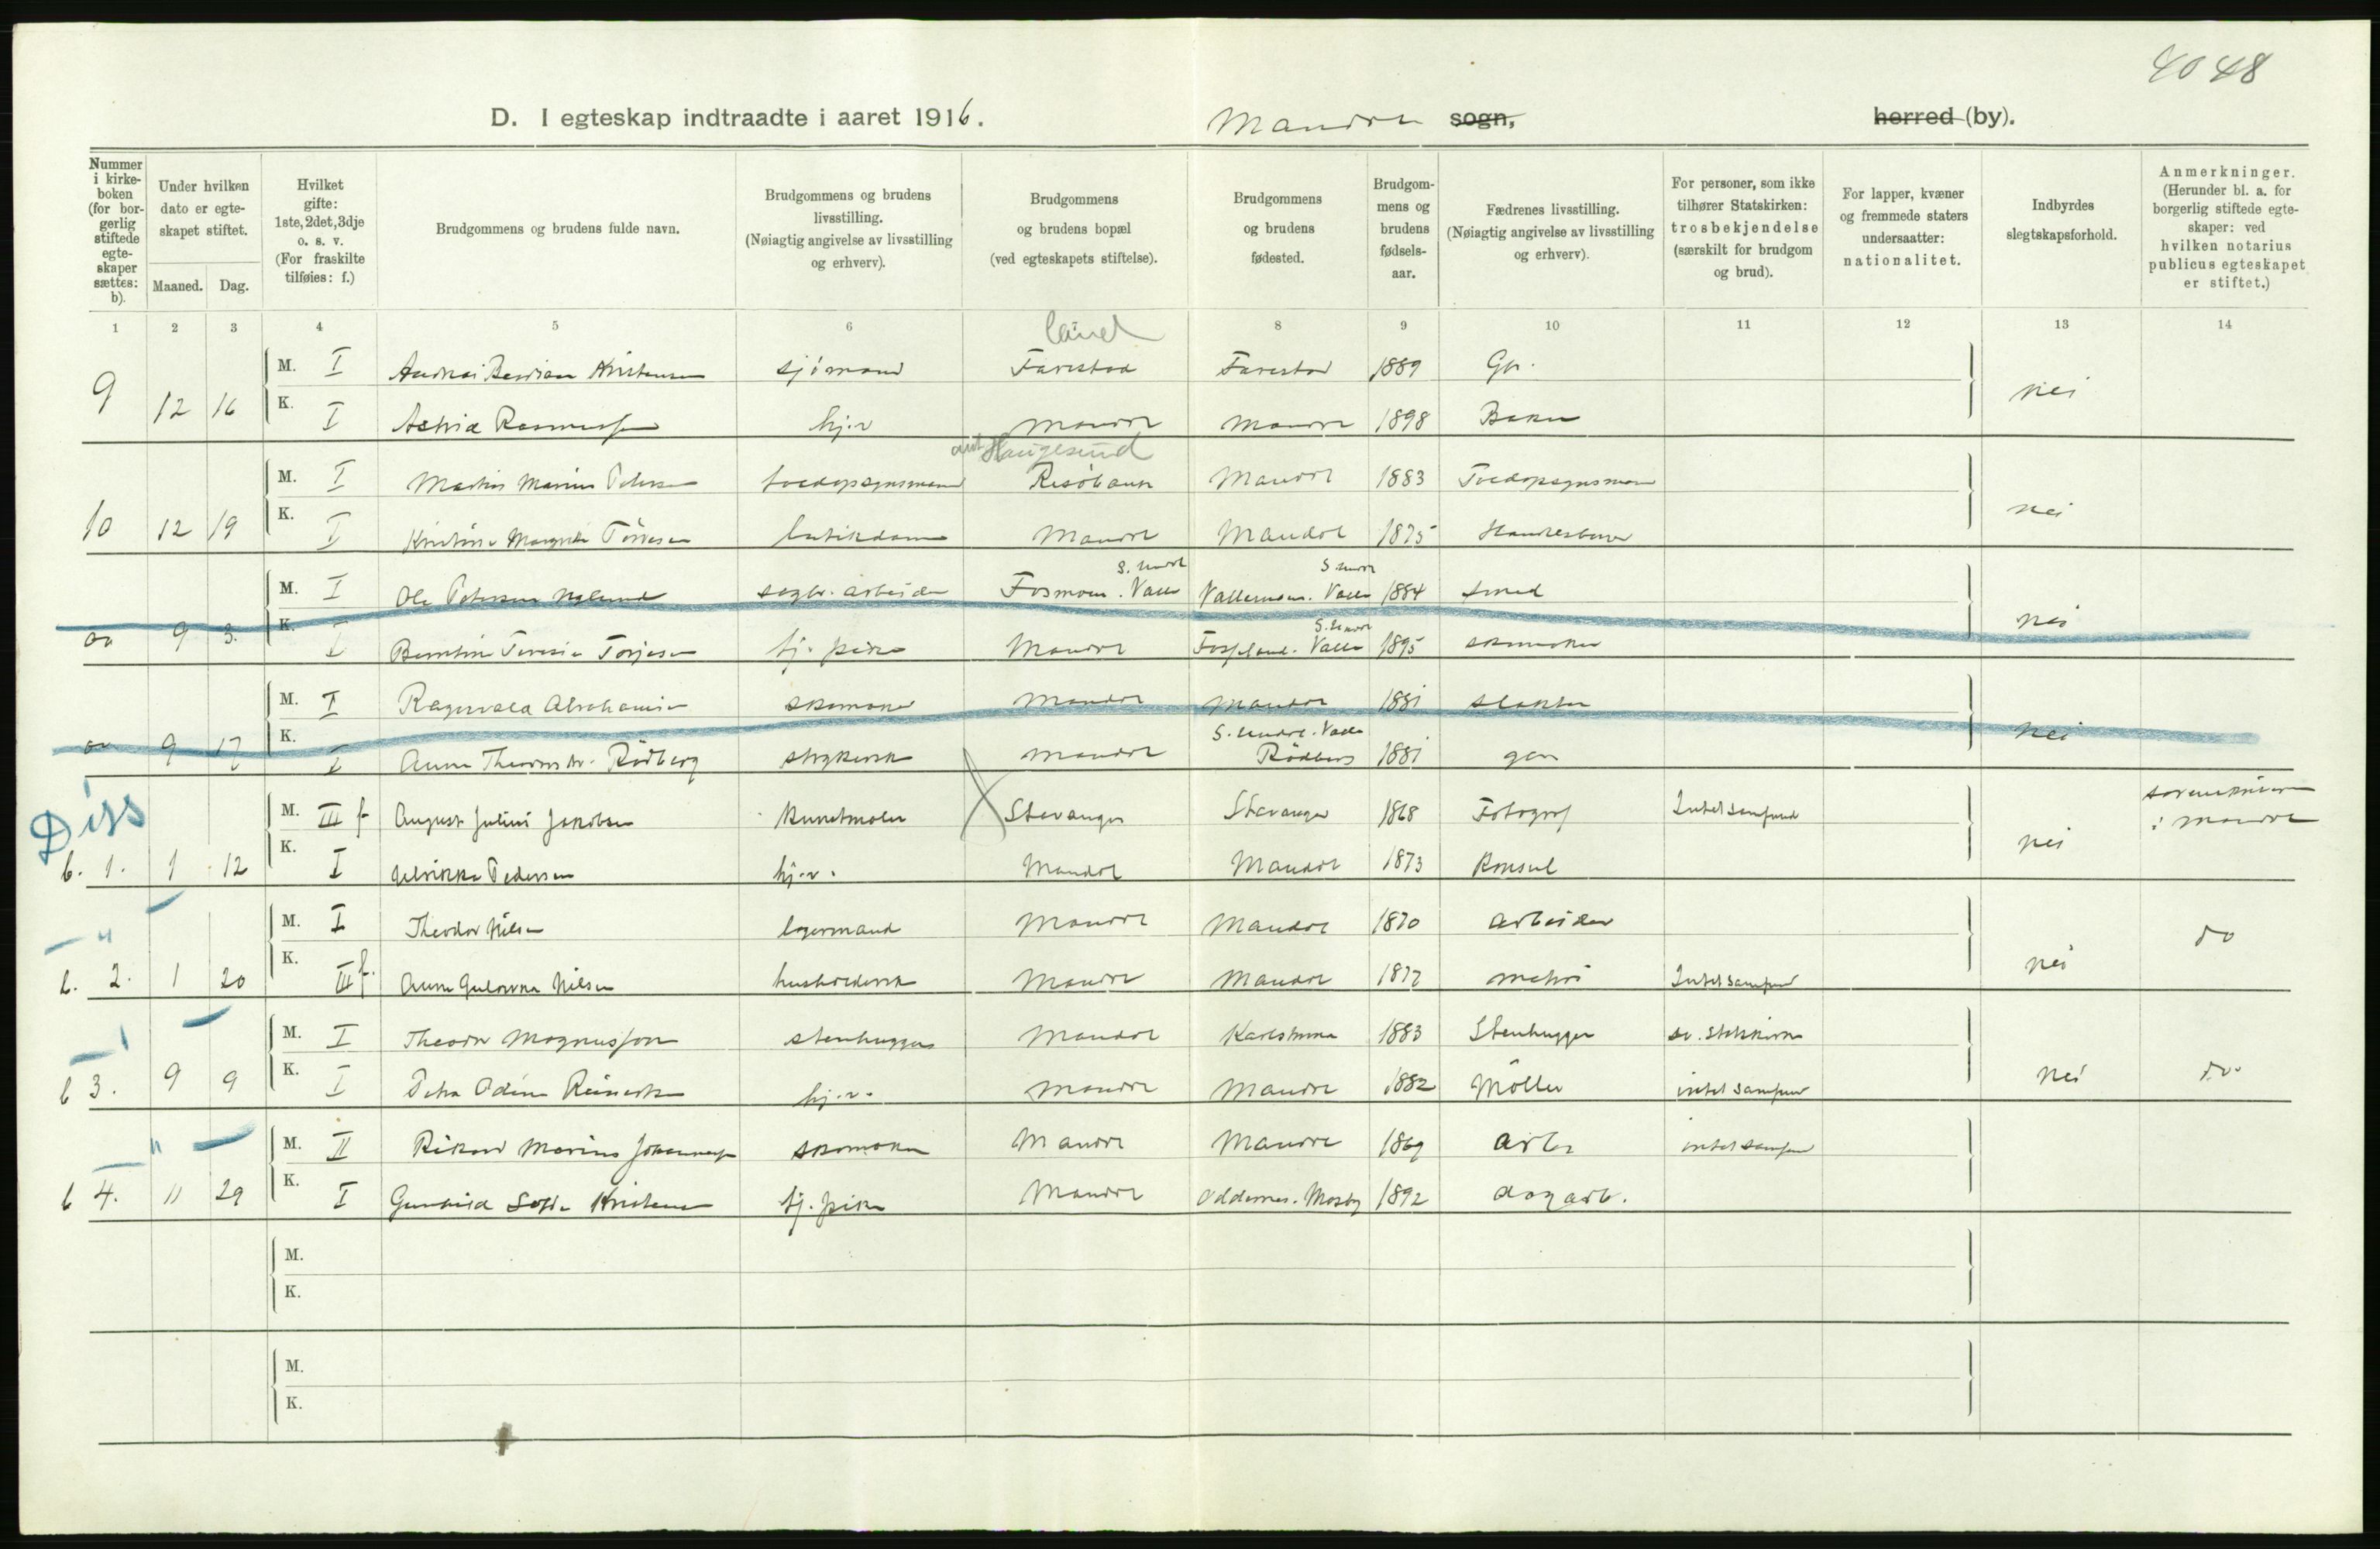 4048
D. I egteskap indtraadte i aaret 1916. Mandal sogn, herred (by).
Nummer i kirke-boken (for bor-gerlig stiftede egte-skaper sættes: b).
Under hvilken dato er egte-skapet stiftet.
Maaned. Dag.
Hvilket gifte: 1ste, 2det, 3dje o. s. v. (For fraskilte tilføies: f.)
Brudgommens og brudens fulde navn.
Brudgommens og brudens livsstilling. (Nøiagtig angivelse av livsstilling og erhverv).
Brudgommens og brudens bopæl (ved egteskapets stiftelse).
Brudgommens og brudens fødested.
Brudgom-mens og brudens fødsels-aar.
Fædrenes livsstilling. (Nøiagtig angivelse av livsstilling og erhverv).
For personer, som ikke tilhører Statskirken: trosbekjendelse (særskilt for brudgom og brud).
For lapper, kvæner og fremmede staters undersaatter: nationalitet.
Indbyrdes slegtskapsforhold.
Anmerkninger. (Herunder bl. a. for borgerlig stiftede egte-skaper: ved hvilken notarius publicus egteskapet er stiftet.)
1 2 3 4 5 6 8 9 10 11 12 13 14
land
M. I Kristensen sjømand Farestad Farestad 1889 Gbr.
9 12 16 K. I Astrid Rasmussen hj.v Mandal Mandal 1898 Baker nei
Haugesund
M. I Martin Marius Petersen Risøbank Mandal 1883
10 12 19 K. I Kristine Margrethe Tørresen butikdame Mandal Mandal 1875 nei
S. Undal S. Undal
M. I Ole Petersen sagbr. arbeider Fosmoen. Valle Vallemoen. Valle 1884 smed
S. Undal
9 3. K. I Torjesen tj. pike Mandal Fosseland. Valle 1895 skomaker nei
M. I Ragnvald Abrahamsen skomaker Mandal Mandal 1881 slakter
S. Undal. Valle
9 17 K. I Anna Rødberg strykerske Mandal Rødberg 1881 gbr nei
Diss
M. III f August Julius Jakobsen Kunstmaler Stavanger Stavanger 1868 Fotograf Intet samfund
sorenskriveren i Mandal
b. 1. 1 12 K. I Ulrikke Pedersen hj.v. Mandal Mandal 1873 Konsul nei
M. I Theodor Nilsen lagermand Mandal Mandal 1870 arbeider
"
do
b. 2. 1 20 K. III f. Anna Gulovna Nilsen husholderske Mandal Mandal 1877 matros Intet samfund nei
M. I Theodor Magnusson stenhugger Mandal Karlshamn 1883 Stenhugger sv. statskirke
b 3. 9 9 K. I Petra Odine Reinertsen hj.v. Mandal Mandal 1882 Møller intet samfund nei do
"
M. II Rikard Marius Johannessen skomaker Mandal Mandal 1869 arb. intet samfund
b 4. 11 29 K. I Gunhild Sofie Kristensen tj. pike Mandal Oddernes. Mosby 1892 dagarb.
M.
K.
M.
K.